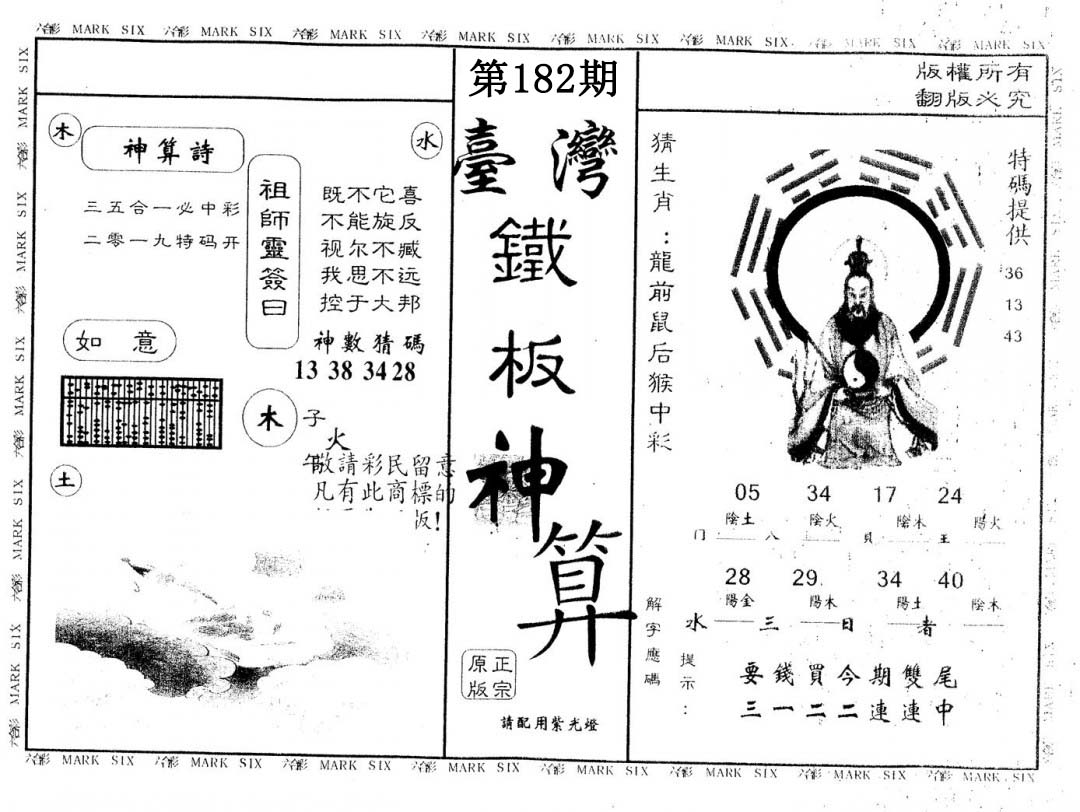 六合彩 MARK SIX 六合彩 MARK SIX 六合彩 MARK SIX 六合彩 MARK SIX 六合彩 MARK SIX 六合彩 MARK SIX 六合彩 MARK SIX 六合彩 MARK SIX
第182期
版權所有
翻版必究
木
神算詩
水
三五合一必中彩
二零一九特码开
祖師靈簽曰
既不它喜
不能旋反
视尔不臧
我思不远
控于大邦
神數猜碼
13 38 34 28
如 意
木
子
火
午
敬請彩民留意
凡有此商標的
版!
土
臺灣
鐵
板
神
算
正宗
原版
請配用紫光燈
猜生肖:龍前鼠后猴中彩
特碼提供
36
13
43
05 34 17 24
陰土 陰火 陰木 陽火
门 八 貝 王
28 29. 34 40
陽金 陽木 陽土 陰木
水 三 日 者
解字應碼
提示:
要錢買今期雙尾
三一二二連連中
六合彩 MARK SIX 六合彩 MARK SIX 六合彩 MARK SIX 六合彩 MARK SIX 六合彩 MARK SIX 六合彩 MARK SIX 六合彩 MARK SIX 六合彩 MARK SIX